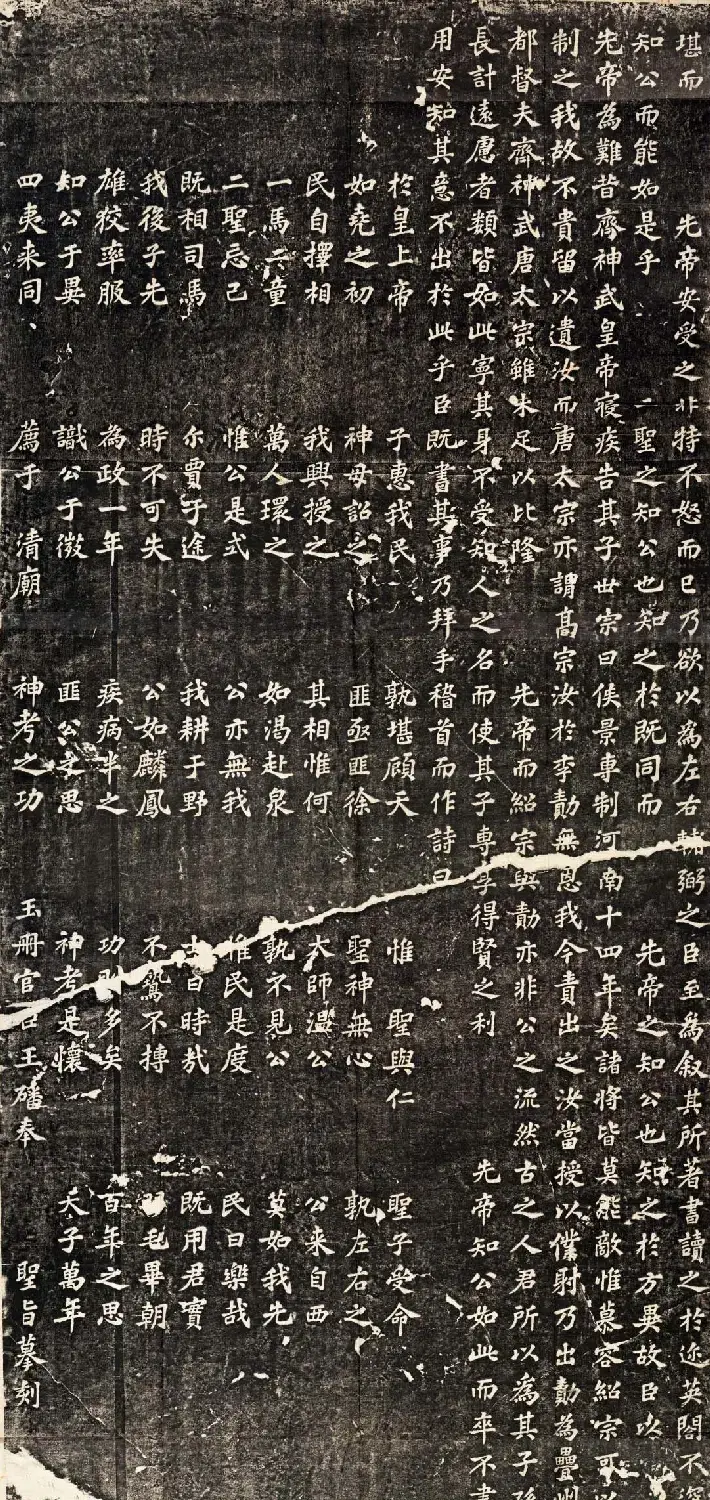 堪而　先帝安受之非特不怒而已乃欲以為左右輔弼之臣至為叙其所著書讀之於迩英閣不深
知公而能如是乎　二聖之知公也知之於既同而　先帝之知公也知之於方異故臣以
先帝為難昔齊神武皇帝寢疾告其子世宗曰侯景專制河南十四年矣諸将皆莫能敵惟慕容紹宗可以
制之我故不貴留以遺汝而唐太宗亦謂髙宗汝於李勣無恩我今責出之汝當授以僕射乃出勣為疊州
都督夫齊神武唐太宗雖未足以比隆　先帝而紹宗與勣亦非公之流然古之人君所以為其子孫
長計遠慮者類皆如此寧其身不受知人之名而使其子專享得賢之利　先帝知公如此而卒不書
用安知其意不出於此乎臣既書其事乃拜手稽首而作詩曰
於皇上帝　子惠我民　孰堪顧天　惟聖與仁　聖子受命
如堯之初　神母詔之　匪亟匪徐　聖神無心　孰左右之
民自擇相　我興授之　其相惟何　太師溫公　公来自西
一馬二童　萬人環之　如渴赴泉　孰不見公　莫如我先
二聖忘己　惟公是式　公亦無我　惟民是度　民曰樂哉
既相司馬　尔賈于途　我耕于野　士曰時哉　既用君實
我後子先　時不可失　公如麟鳳　不鷙不搏　羽毛畢朝
雄狡率服　為政一年　疾病半之　功則多矣　百年之思
知公于異　識公于微　匪公之思　神考是懷　天子萬年
四夷来同　薦于　清廟　神考之功　玉冊官臣王磻奉　聖旨摹刻